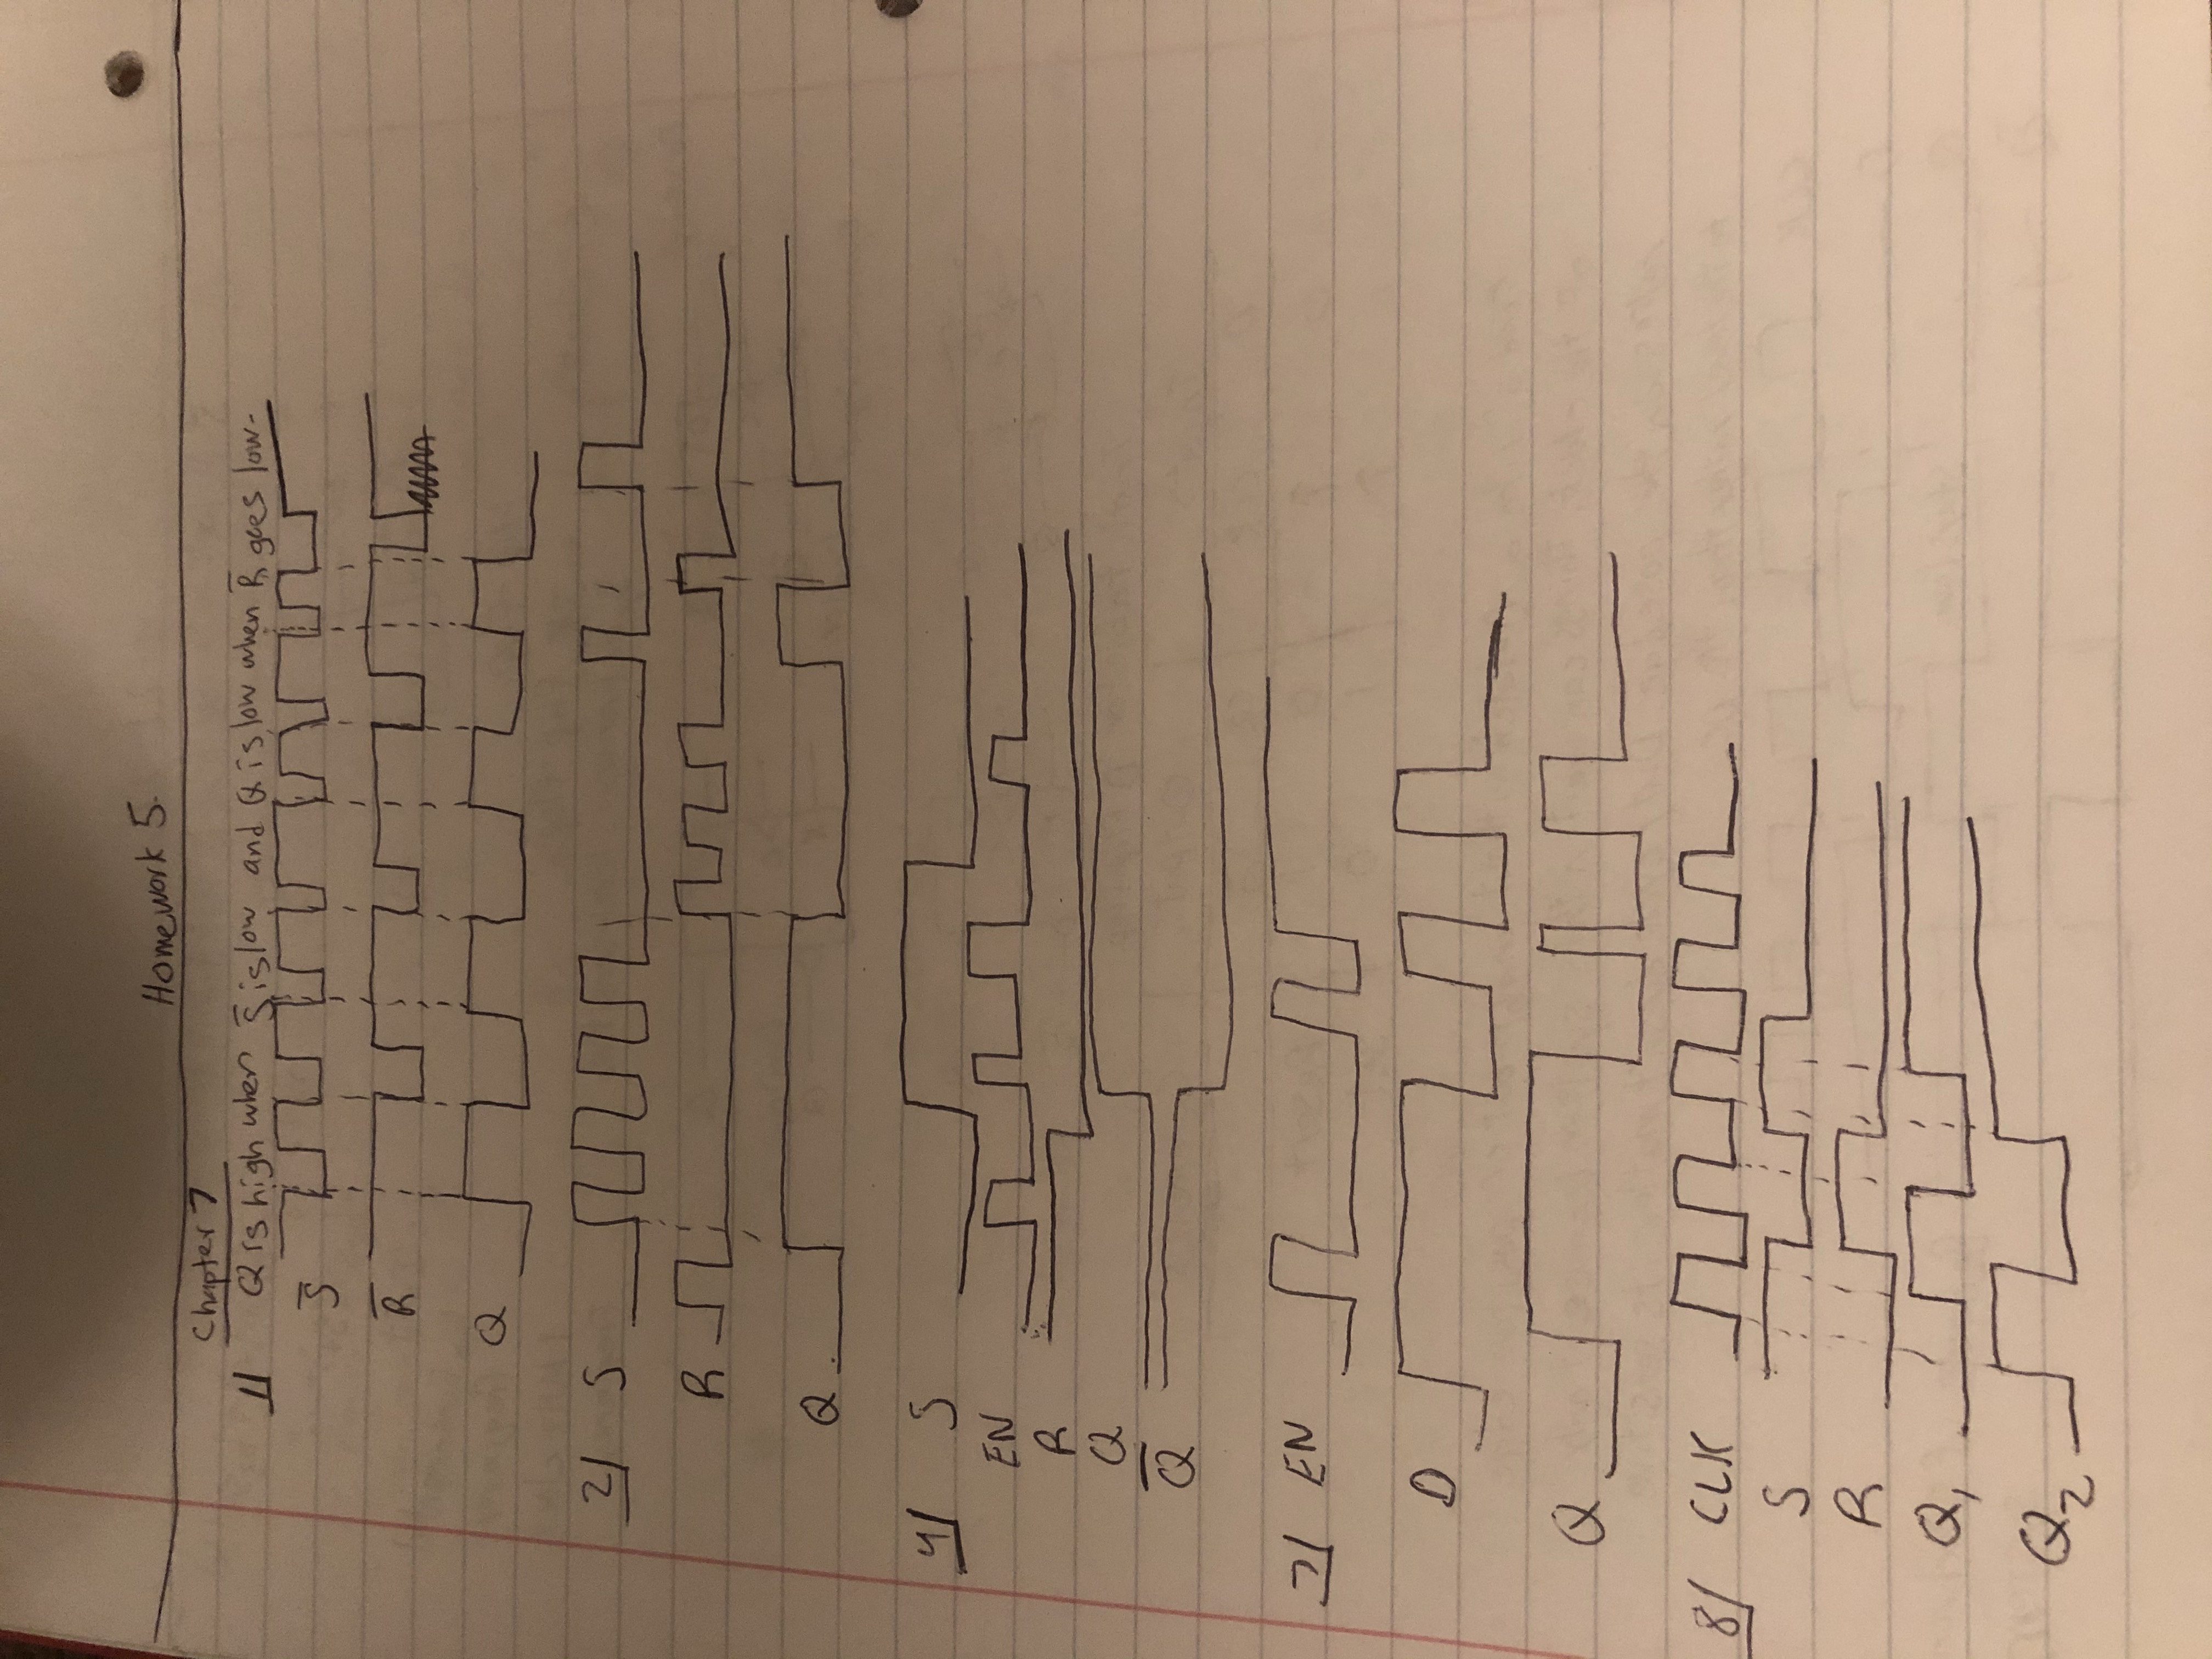 Homework 5.
Chapter 7
1) Q is high when S̅ is low and Q is low when R̅ goes low.
S̅
R̅
Q
2) S
R
Q
4) S
EN
R
Q
Q̅
7) EN
D
Q
8) CLK
S
R
Q₁
Q₂